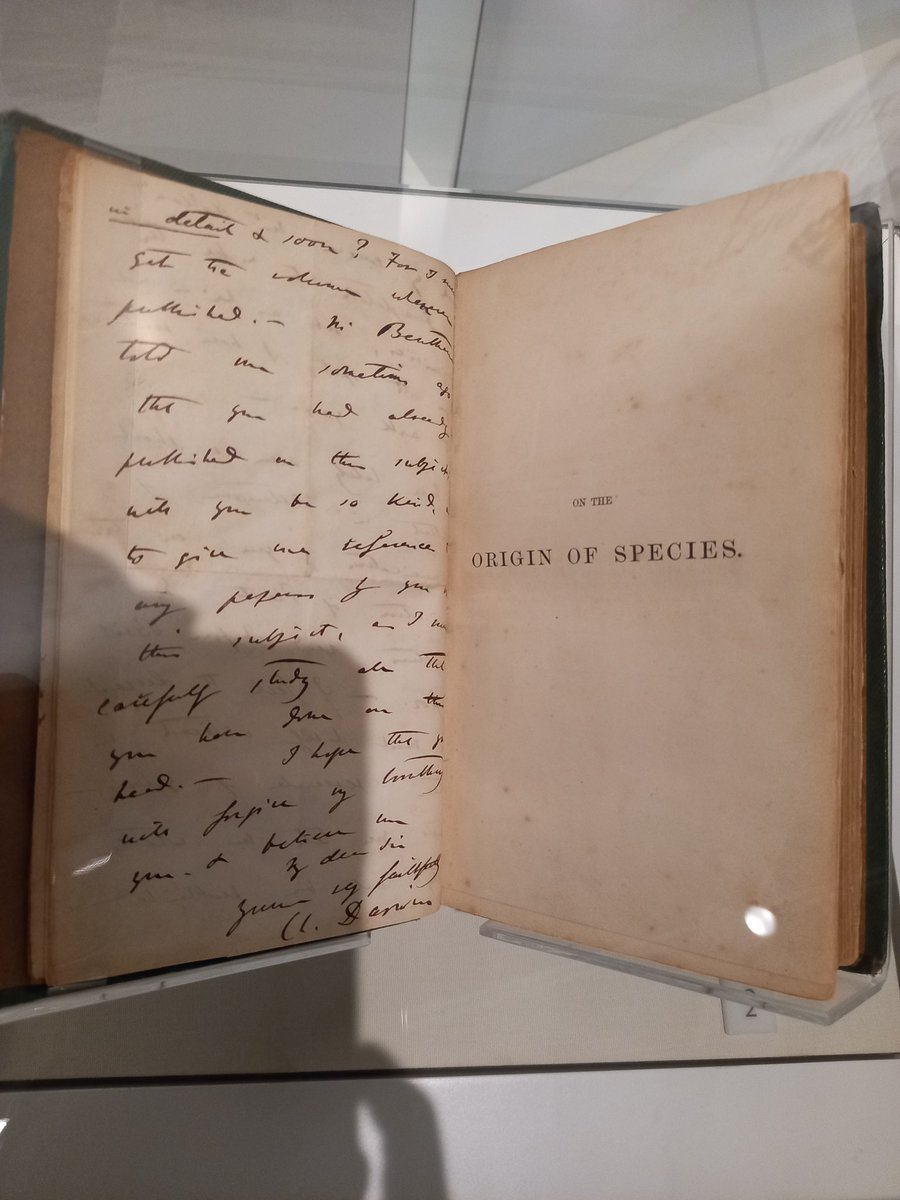 in detail & soon? For I
get the volume whenever
published. — Mr Benth
told me sometime ago
that you had already
published on this subject
will you be so kind,
to give me reference
any papers by you
this subject, as I
carefully study all the
you have done on this
head. — I hope that y
will forgive my troubling
you. & believe me
My dear Sir
Yours very faithfully
Ch. Darwin
ON THE
ORIGIN OF SPECIES.
2